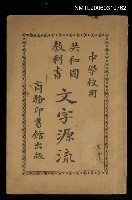 NMTL20060310762
中學校用
共和國
教科書
文字源流
商務印書館出版